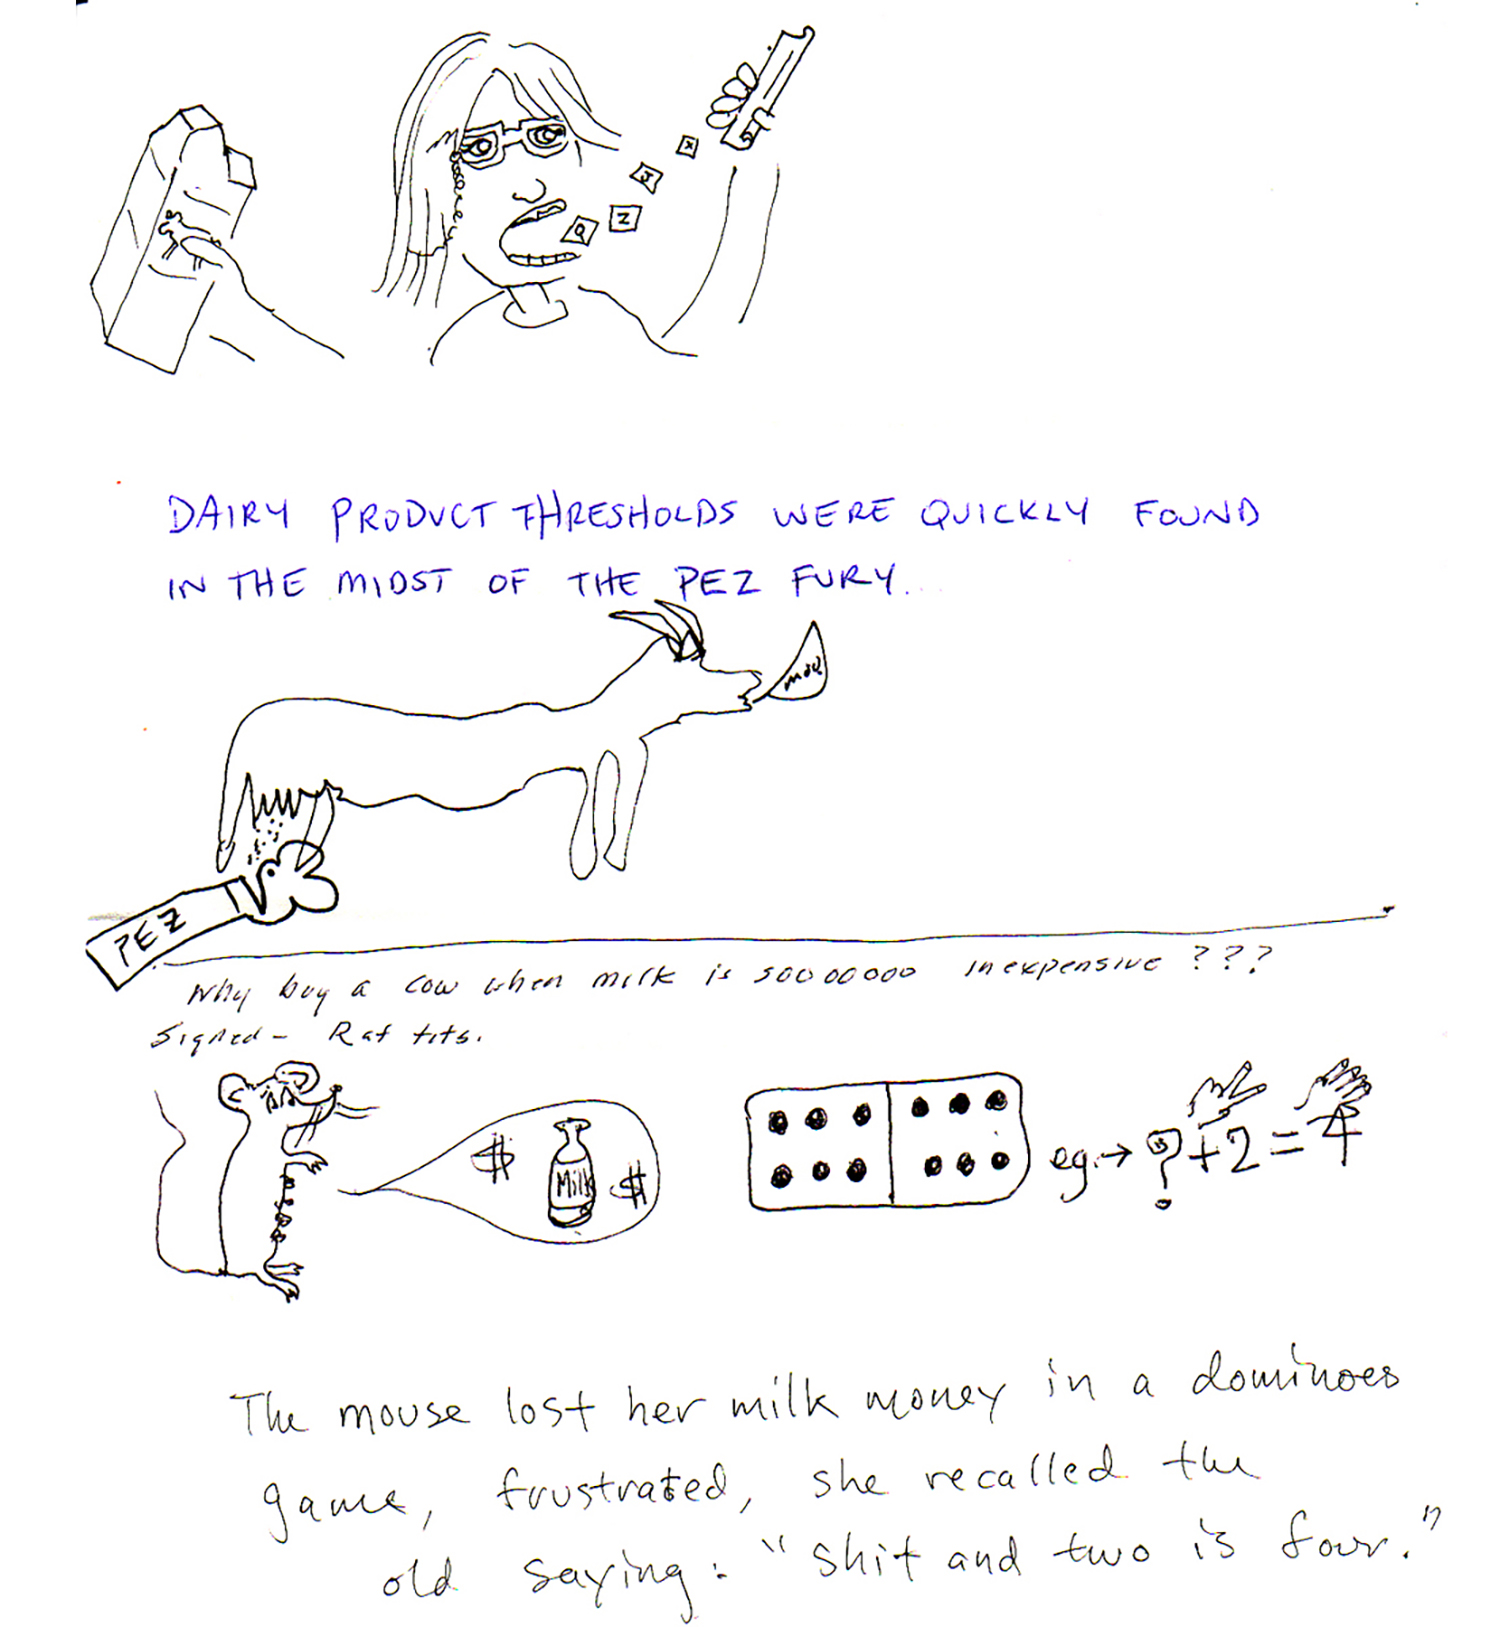 X
J
Z
Q
DAIRY PRODUCT THRESHOLDS WERE QUICKLY FOUND
IN THE MIDST OF THE PEZ FURY...
moo
PEZ
Why buy a cow when milk is soooooooo inexpensive ???
Signed - Rat tits.
$ Milk $
eg. → ? + 2 = 4
The mouse lost her milk money in a dominoes
game, frustrated, she recalled the
old saying: "shit and two is four."